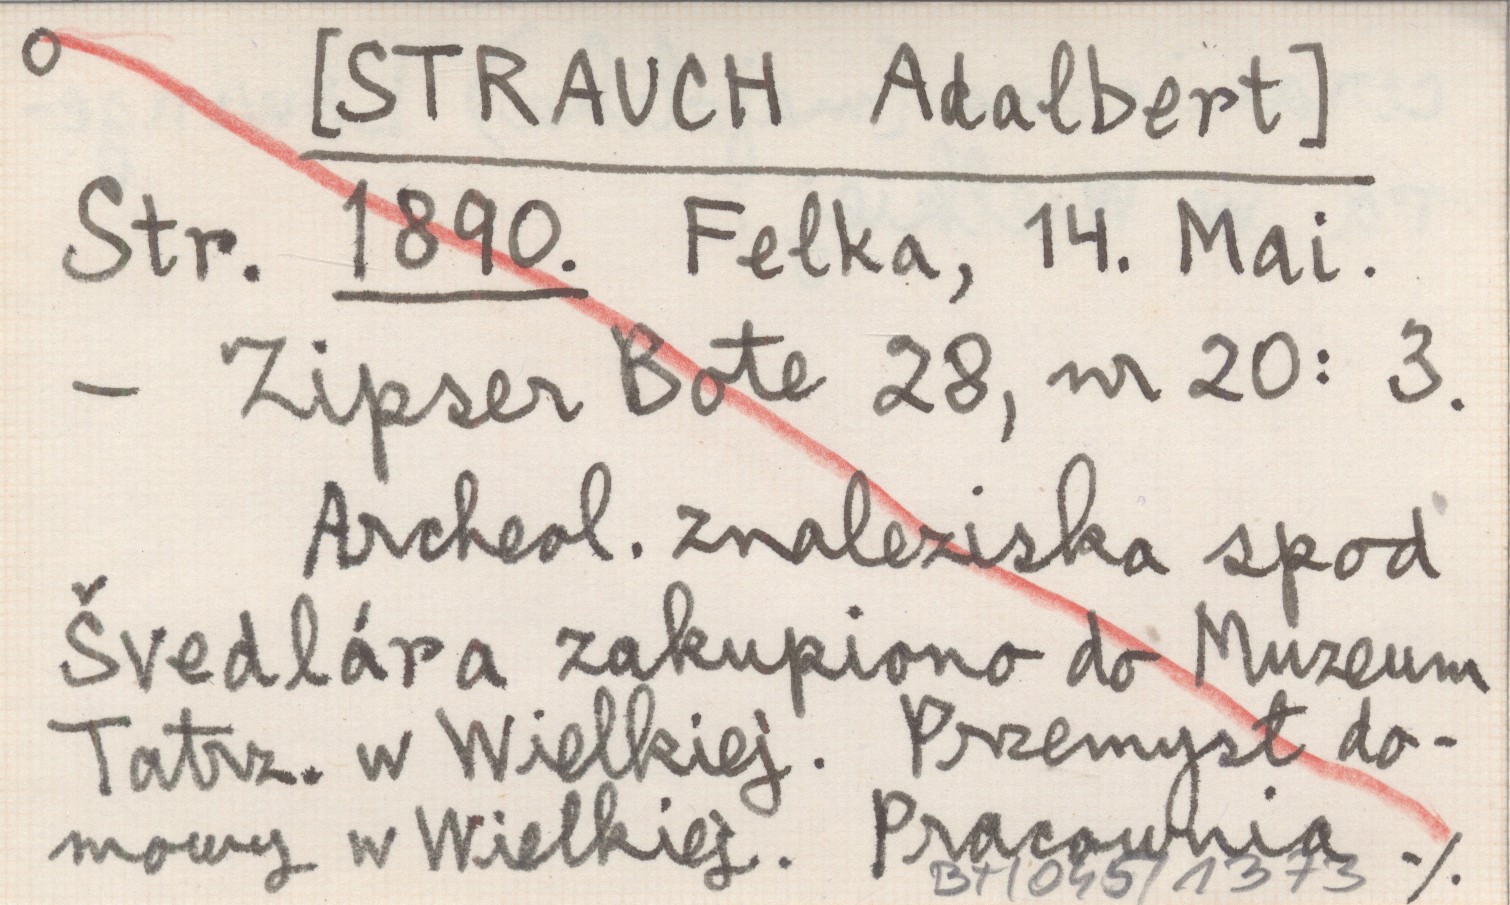 [STRAUCH Adalbert]
Str. 1890. Felka, 14. Mai.
– Zipser Bote 28, nr 20: 3.
Archeol. znaleziska spod
Švedlára zakupiono do Muzeum
Tatrz. w Wielkiej. Przemysł do-
mowy w Wielkiej. Pracownia ·/.
045/1373